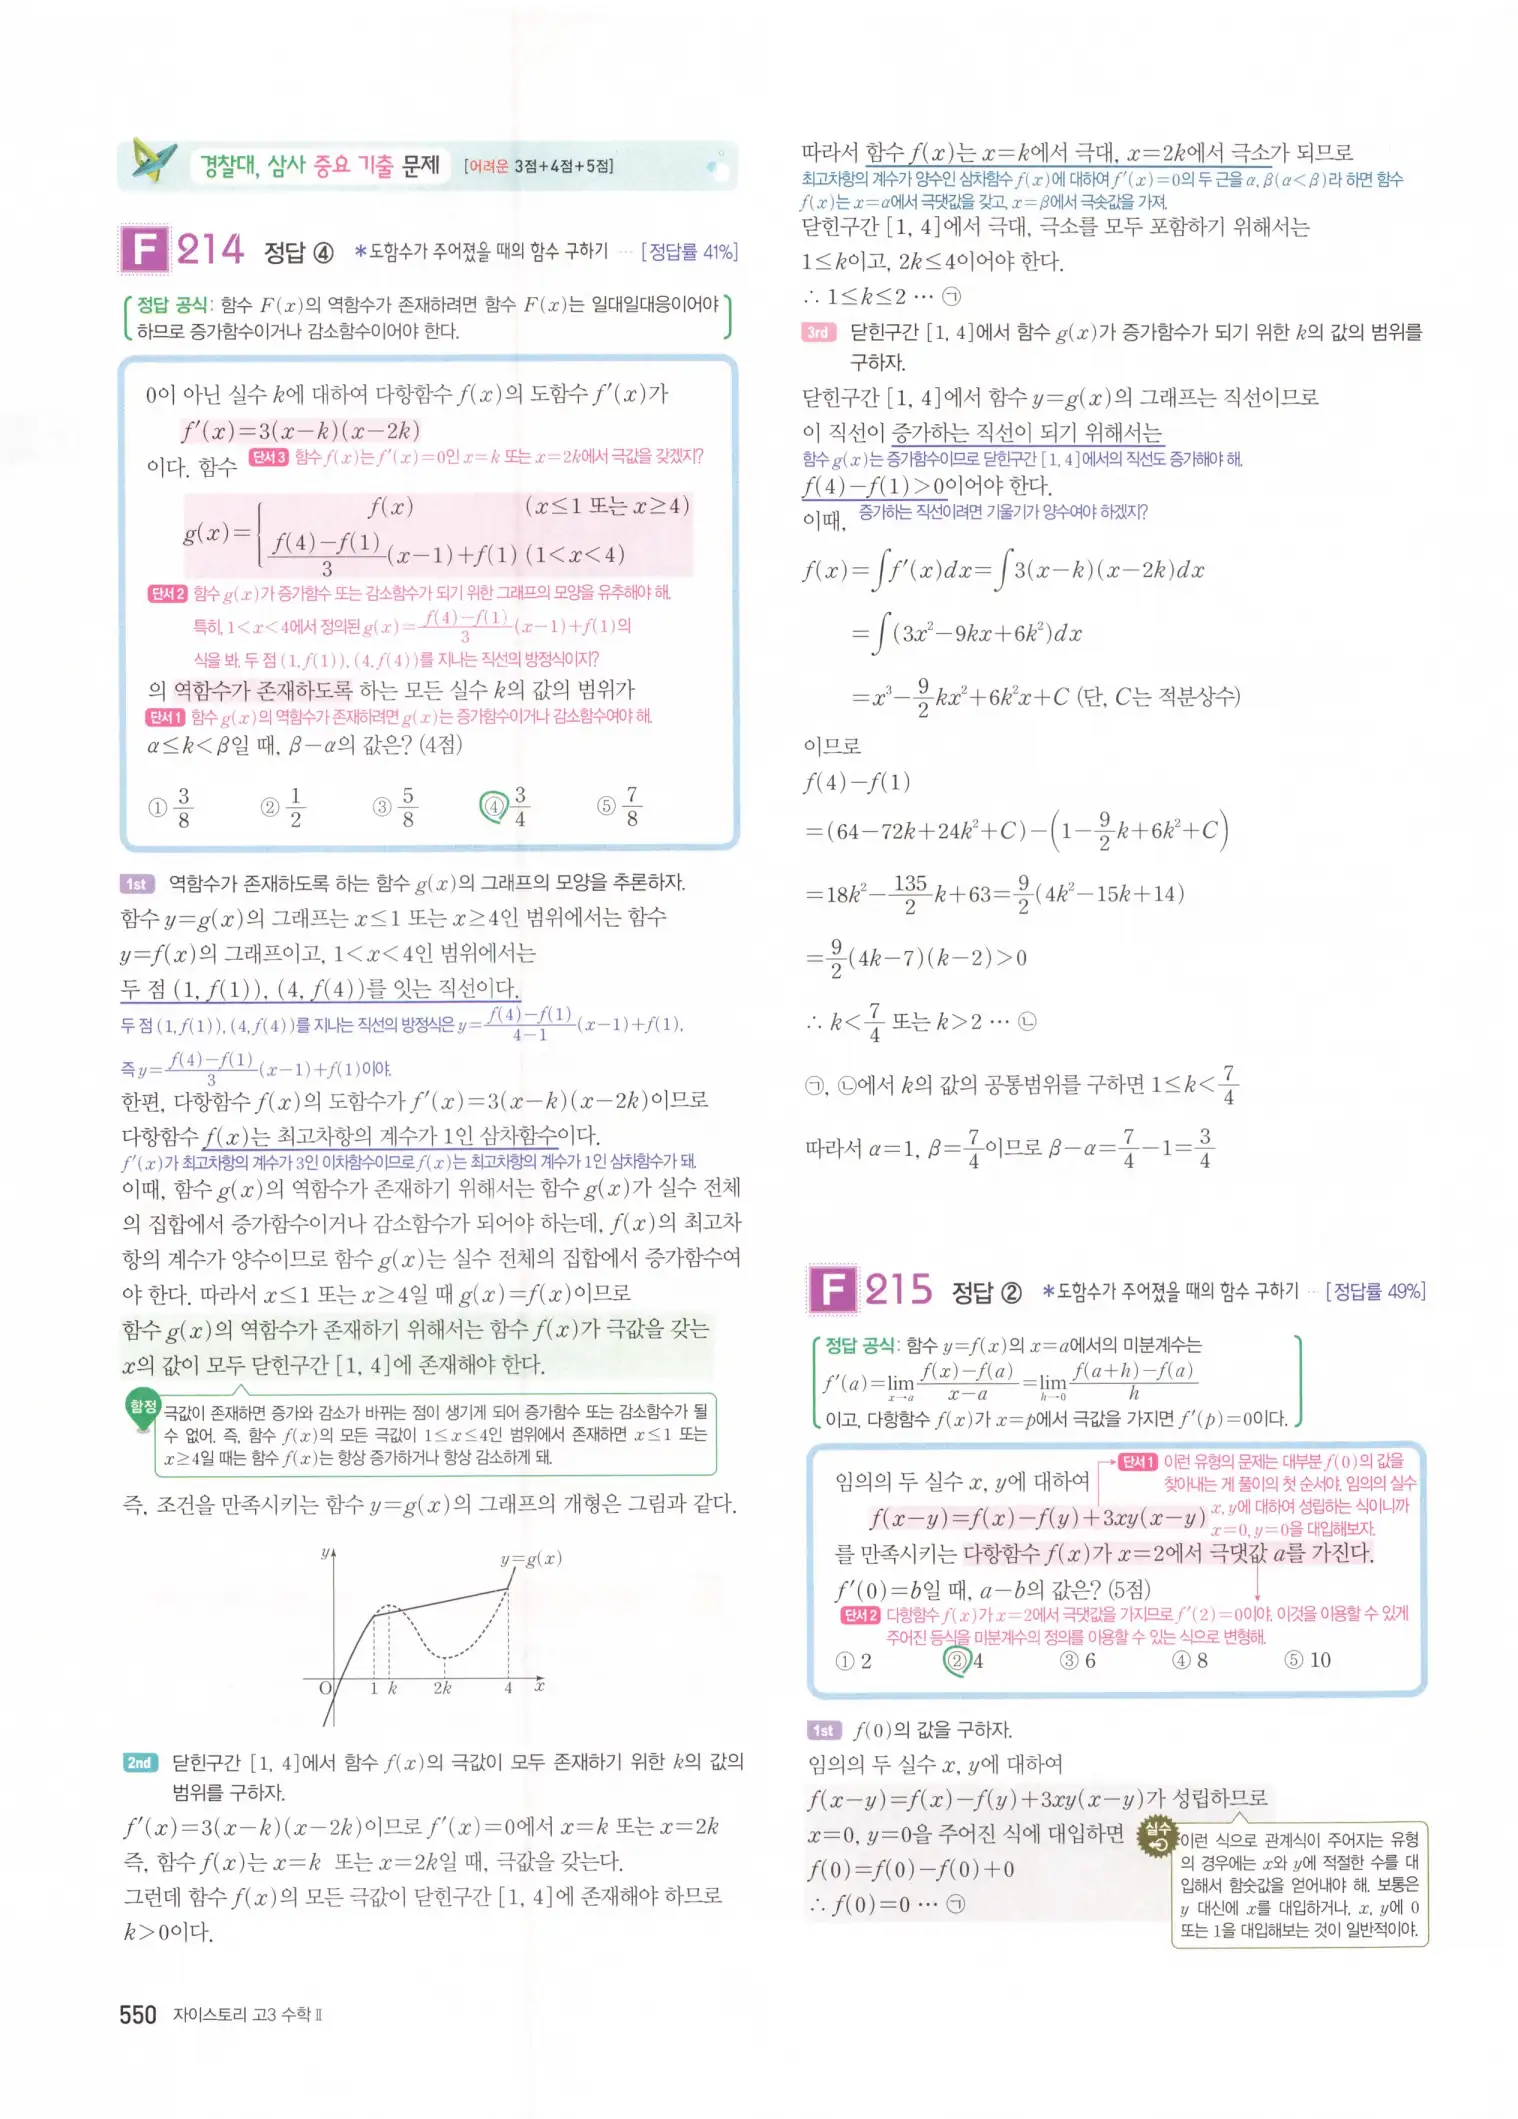 경찰대, 삼사 중요 기출 문제 [어려운 3점+4점+5점]
F 214 정답 ④ *도함수가 주어졌을 때의 함수 구하기 … [정답률 41%]
정답 공식: 함수 F(x)의 역함수가 존재하려면 함수 F(x)는 일대일대응이어야
하므로 증가함수이거나 감소함수이어야 한다.
0이 아닌 실수 k에 대하여 다항함수 f(x)의 도함수 f′(x)가
f′(x)=3(x-k)(x-2k)
이다. 함수 단서3 함수 f(x)는 f′(x)=0인 x=k 또는 x=2k에서 극값을 갖겠지?
g(x)={ f(x) (x≤1 또는 x≥4)
(f(4)-f(1))/3 (x-1)+f(1) (1<x<4)
단서2 함수 g(x)가 증가함수 또는 감소함수가 되기 위한 그래프의 모양을 유추해야 해.
특히, 1<x<4에서 정의된 g(x)=(f(4)-f(1))/3 (x-1)+f(1)의
식을 봐. 두 점 (1, f(1)), (4, f(4))를 지나는 직선의 방정식이지?
의 역함수가 존재하도록 하는 모든 실수 k의 값의 범위가
단서1 함수 g(x)의 역함수가 존재하려면 g(x)는 증가함수이거나 감소함수여야 해.
α≤k<β일 때, β-α의 값은? (4점)
① 3/8 ② 1/2 ③ 5/8 ④ 3/4 ⑤ 7/8
1st 역함수가 존재하도록 하는 함수 g(x)의 그래프의 모양을 추론하자.
함수 y=g(x)의 그래프는 x≤1 또는 x≥4인 범위에서는 함수
y=f(x)의 그래프이고, 1<x<4인 범위에서는
두 점 (1, f(1)), (4, f(4))를 잇는 직선이다.
두 점 (1, f(1)), (4, f(4))를 지나는 직선의 방정식은 y=(f(4)-f(1))/(4-1) (x-1)+f(1),
즉 y=(f(4)-f(1))/3 (x-1)+f(1)이야.
한편, 다항함수 f(x)의 도함수가 f′(x)=3(x-k)(x-2k)이므로
다항함수 f(x)는 최고차항의 계수가 1인 삼차함수이다.
f′(x)가 최고차항의 계수가 3인 이차함수이므로 f(x)는 최고차항의 계수가 1인 삼차함수가 돼.
이때, 함수 g(x)의 역함수가 존재하기 위해서는 함수 g(x)가 실수 전체
의 집합에서 증가함수이거나 감소함수가 되어야 하는데, f(x)의 최고차
항의 계수가 양수이므로 함수 g(x)는 실수 전체의 집합에서 증가함수여
야 한다. 따라서 x≤1 또는 x≥4일 때 g(x)=f(x)이므로
함수 g(x)의 역함수가 존재하기 위해서는 함수 f(x)가 극값을 갖는
x의 값이 모두 닫힌구간 [1, 4]에 존재해야 한다.
함정 극값이 존재하면 증가와 감소가 바뀌는 점이 생기게 되어 증가함수 또는 감소함수가 될
수 없어. 즉, 함수 f(x)의 모든 극값이 1≤x≤4인 범위에서 존재하면 x≤1 또는
x≥4일 때는 함수 f(x)는 항상 증가하거나 항상 감소하게 돼.
즉, 조건을 만족시키는 함수 y=g(x)의 그래프의 개형은 그림과 같다.
y y=g(x)
O 1 k 2k 4 x
2nd 닫힌구간 [1, 4]에서 함수 f(x)의 극값이 모두 존재하기 위한 k의 값의
범위를 구하자.
f′(x)=3(x-k)(x-2k)이므로 f′(x)=0에서 x=k 또는 x=2k
즉, 함수 f(x)는 x=k 또는 x=2k일 때, 극값을 갖는다.
그런데 함수 f(x)의 모든 극값이 닫힌구간 [1, 4]에 존재해야 하므로
k>0이다.
따라서 함수 f(x)는 x=k에서 극대, x=2k에서 극소가 되므로
최고차항의 계수가 양수인 삼차함수 f(x)에 대하여 f′(x)=0의 두 근을 α, β(α<β)라 하면 함수
f(x)는 x=α에서 극댓값을 갖고, x=β에서 극솟값을 가져.
닫힌구간 [1, 4]에서 극대, 극소를 모두 포함하기 위해서는
1≤k이고, 2k≤4이어야 한다.
∴ 1≤k≤2 … ㉠
3rd 닫힌구간 [1, 4]에서 함수 g(x)가 증가함수가 되기 위한 k의 값의 범위를
구하자.
닫힌구간 [1, 4]에서 함수 y=g(x)의 그래프는 직선이므로
이 직선이 증가하는 직선이 되기 위해서는
함수 g(x)는 증가함수이므로 닫힌구간 [1, 4]에서의 직선도 증가해야 해.
f(4)-f(1)>0이어야 한다.
이때, 증가하는 직선이려면 기울기가 양수여야 하겠지?
f(x)=∫f′(x)dx=∫3(x-k)(x-2k)dx
=∫(3x²-9kx+6k²)dx
=x³-9/2kx²+6k²x+C (단, C는 적분상수)
이므로
f(4)-f(1)
=(64-72k+24k²+C)-(1-9/2k+6k²+C)
=18k²-135/2k+63=9/2(4k²-15k+14)
=9/2(4k-7)(k-2)>0
∴ k<7/4 또는 k>2 … ㉡
㉠, ㉡에서 k의 값의 공통범위를 구하면 1≤k<7/4
따라서 α=1, β=7/4이므로 β-α=7/4-1=3/4
F 215 정답 ② *도함수가 주어졌을 때의 함수 구하기 … [정답률 49%]
정답 공식: 함수 y=f(x)의 x=a에서의 미분계수는
f′(a)=lim x→a (f(x)-f(a))/(x-a)=lim h→0 (f(a+h)-f(a))/h
이고, 다항함수 f(x)가 x=p에서 극값을 가지면 f′(p)=0이다.
단서1 이런 유형의 문제는 대부분 f(0)의 값을
임의의 두 실수 x, y에 대하여 찾아내는 게 풀이의 첫 순서야. 임의의 실수
f(x-y)=f(x)-f(y)+3xy(x-y) x, y에 대하여 성립하는 식이니까
x=0, y=0을 대입해보자.
를 만족시키는 다항함수 f(x)가 x=2에서 극댓값 a를 가진다.
f′(0)=b일 때, a-b의 값은? (5점)
단서2 다항함수 f(x)가 x=2에서 극댓값을 가지므로 f′(2)=0이야. 이것을 이용할 수 있게
주어진 등식을 미분계수의 정의를 이용할 수 있는 식으로 변형해.
① 2 ② 4 ③ 6 ④ 8 ⑤ 10
1st f(0)의 값을 구하자.
임의의 두 실수 x, y에 대하여
f(x-y)=f(x)-f(y)+3xy(x-y)가 성립하므로
x=0, y=0을 주어진 식에 대입하면
f(0)=f(0)-f(0)+0
∴ f(0)=0 … ㉠
실수 이런 식으로 관계식이 주어지는 유형
의 경우에는 x와 y에 적절한 수를 대
입해서 함숫값을 얻어내야 해. 보통은
y 대신에 x를 대입하거나, x, y에 0
또는 1을 대입해보는 것이 일반적이야.
550 자이스토리 고3 수학Ⅱ